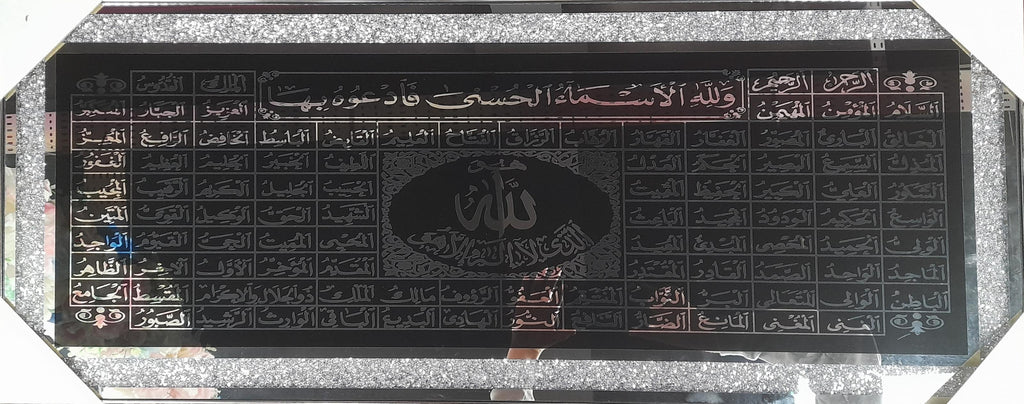 الرحمن الرحيم وَلِلَّهِ الْأَسْمَاءُ الْحُسْنَى فَادْعُوهُ بِهَا الملك القدوس
السلام المؤمن المهيمن العزيز الجبار المتكبر
الخالق البارئ المصور الغفار القهار الوهاب الرزاق الفتاح العليم القابض الباسط الخافض الرافع المعز
المذل السميع البصير الحكم العدل اللطيف الخبير الحليم العظيم الغفور
الشكور العلي الكبير الحفيظ المقيت الحسيب الجليل الكريم الرقيب المجيب
هو الله الذي لا إله إلا هو
الواسع الحكيم الودود المجيد الباعث الشهيد الحق الوكيل القوي المتين
الولي الحميد المحصي المبدئ المعيد المحيي المميت الحي القيوم الواجد
الماجد الواحد الصمد القادر المقتدر المقدم المؤخر الأول الآخر الظاهر
الباطن الوالي المتعالي البر التواب المنتقم العفو الرؤوف مالك الملك ذو الجلال والإكرام المقسط الجامع
الغني المغني المانع الضار النافع النور الهادي البديع الباقي الوارث الرشيد الصبور